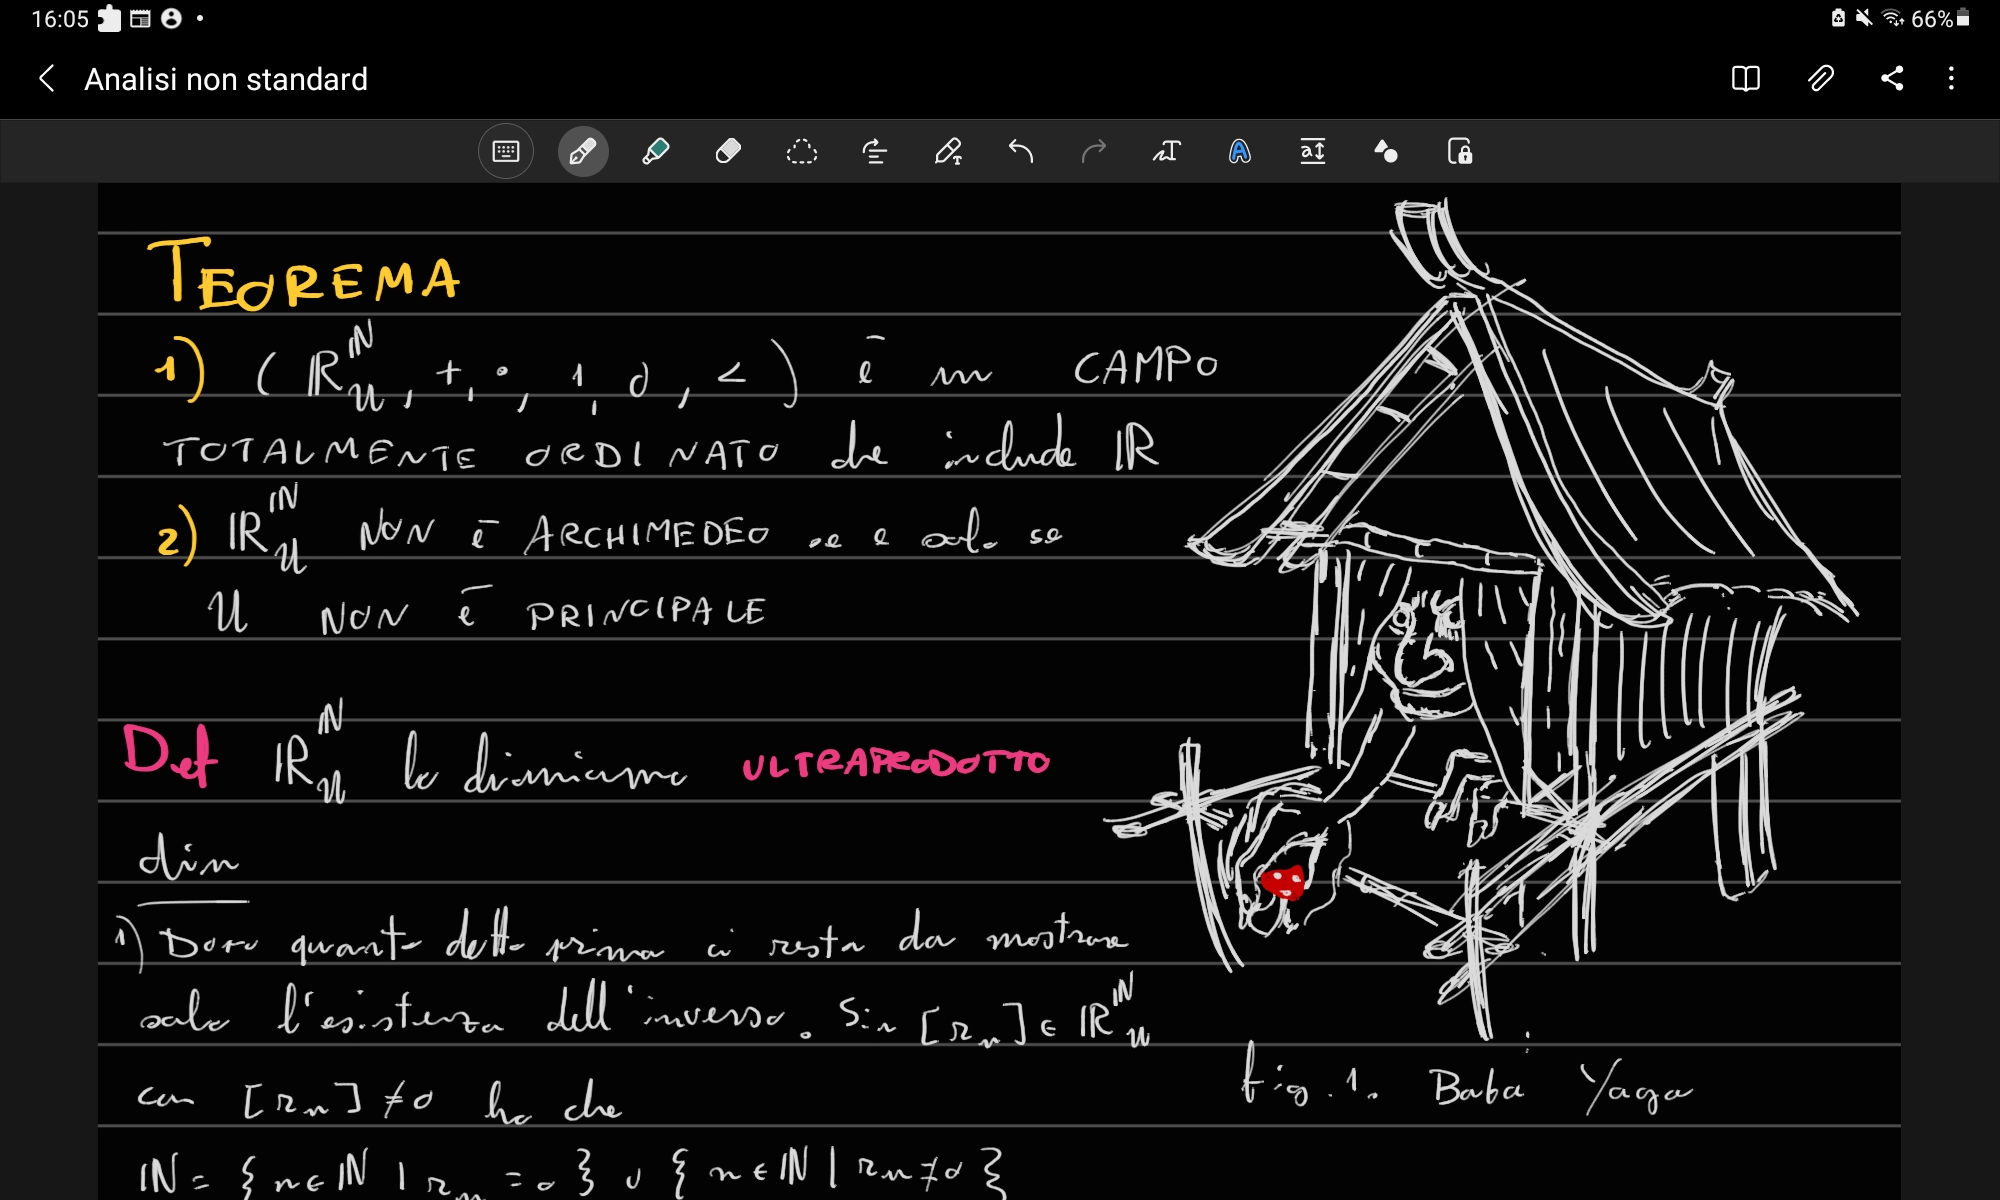 16:05
66%
Analisi non standard
TEOREMA
1) (ℝ^ℕ_U, +, ·, 1, 0, <) è un CAMPO
TOTALMENTE ORDINATO che include ℝ
2) ℝ^ℕ_U NON è ARCHIMEDEO se e solo se
U NON è PRINCIPALE
Def ℝ^ℕ_U lo chiamiamo ULTRAPRODOTTO
dim
1) Dopo quanto detto prima ci resta da mostrare
solo l'esistenza dell'inverso. Sia [r_n] ∈ ℝ^ℕ_U
con [r_n] ≠ 0 ho che
ℕ = {n ∈ ℕ | r_n = 0} ∪ {n ∈ ℕ | r_n ≠ 0}
fig. 1. Baba Yaga